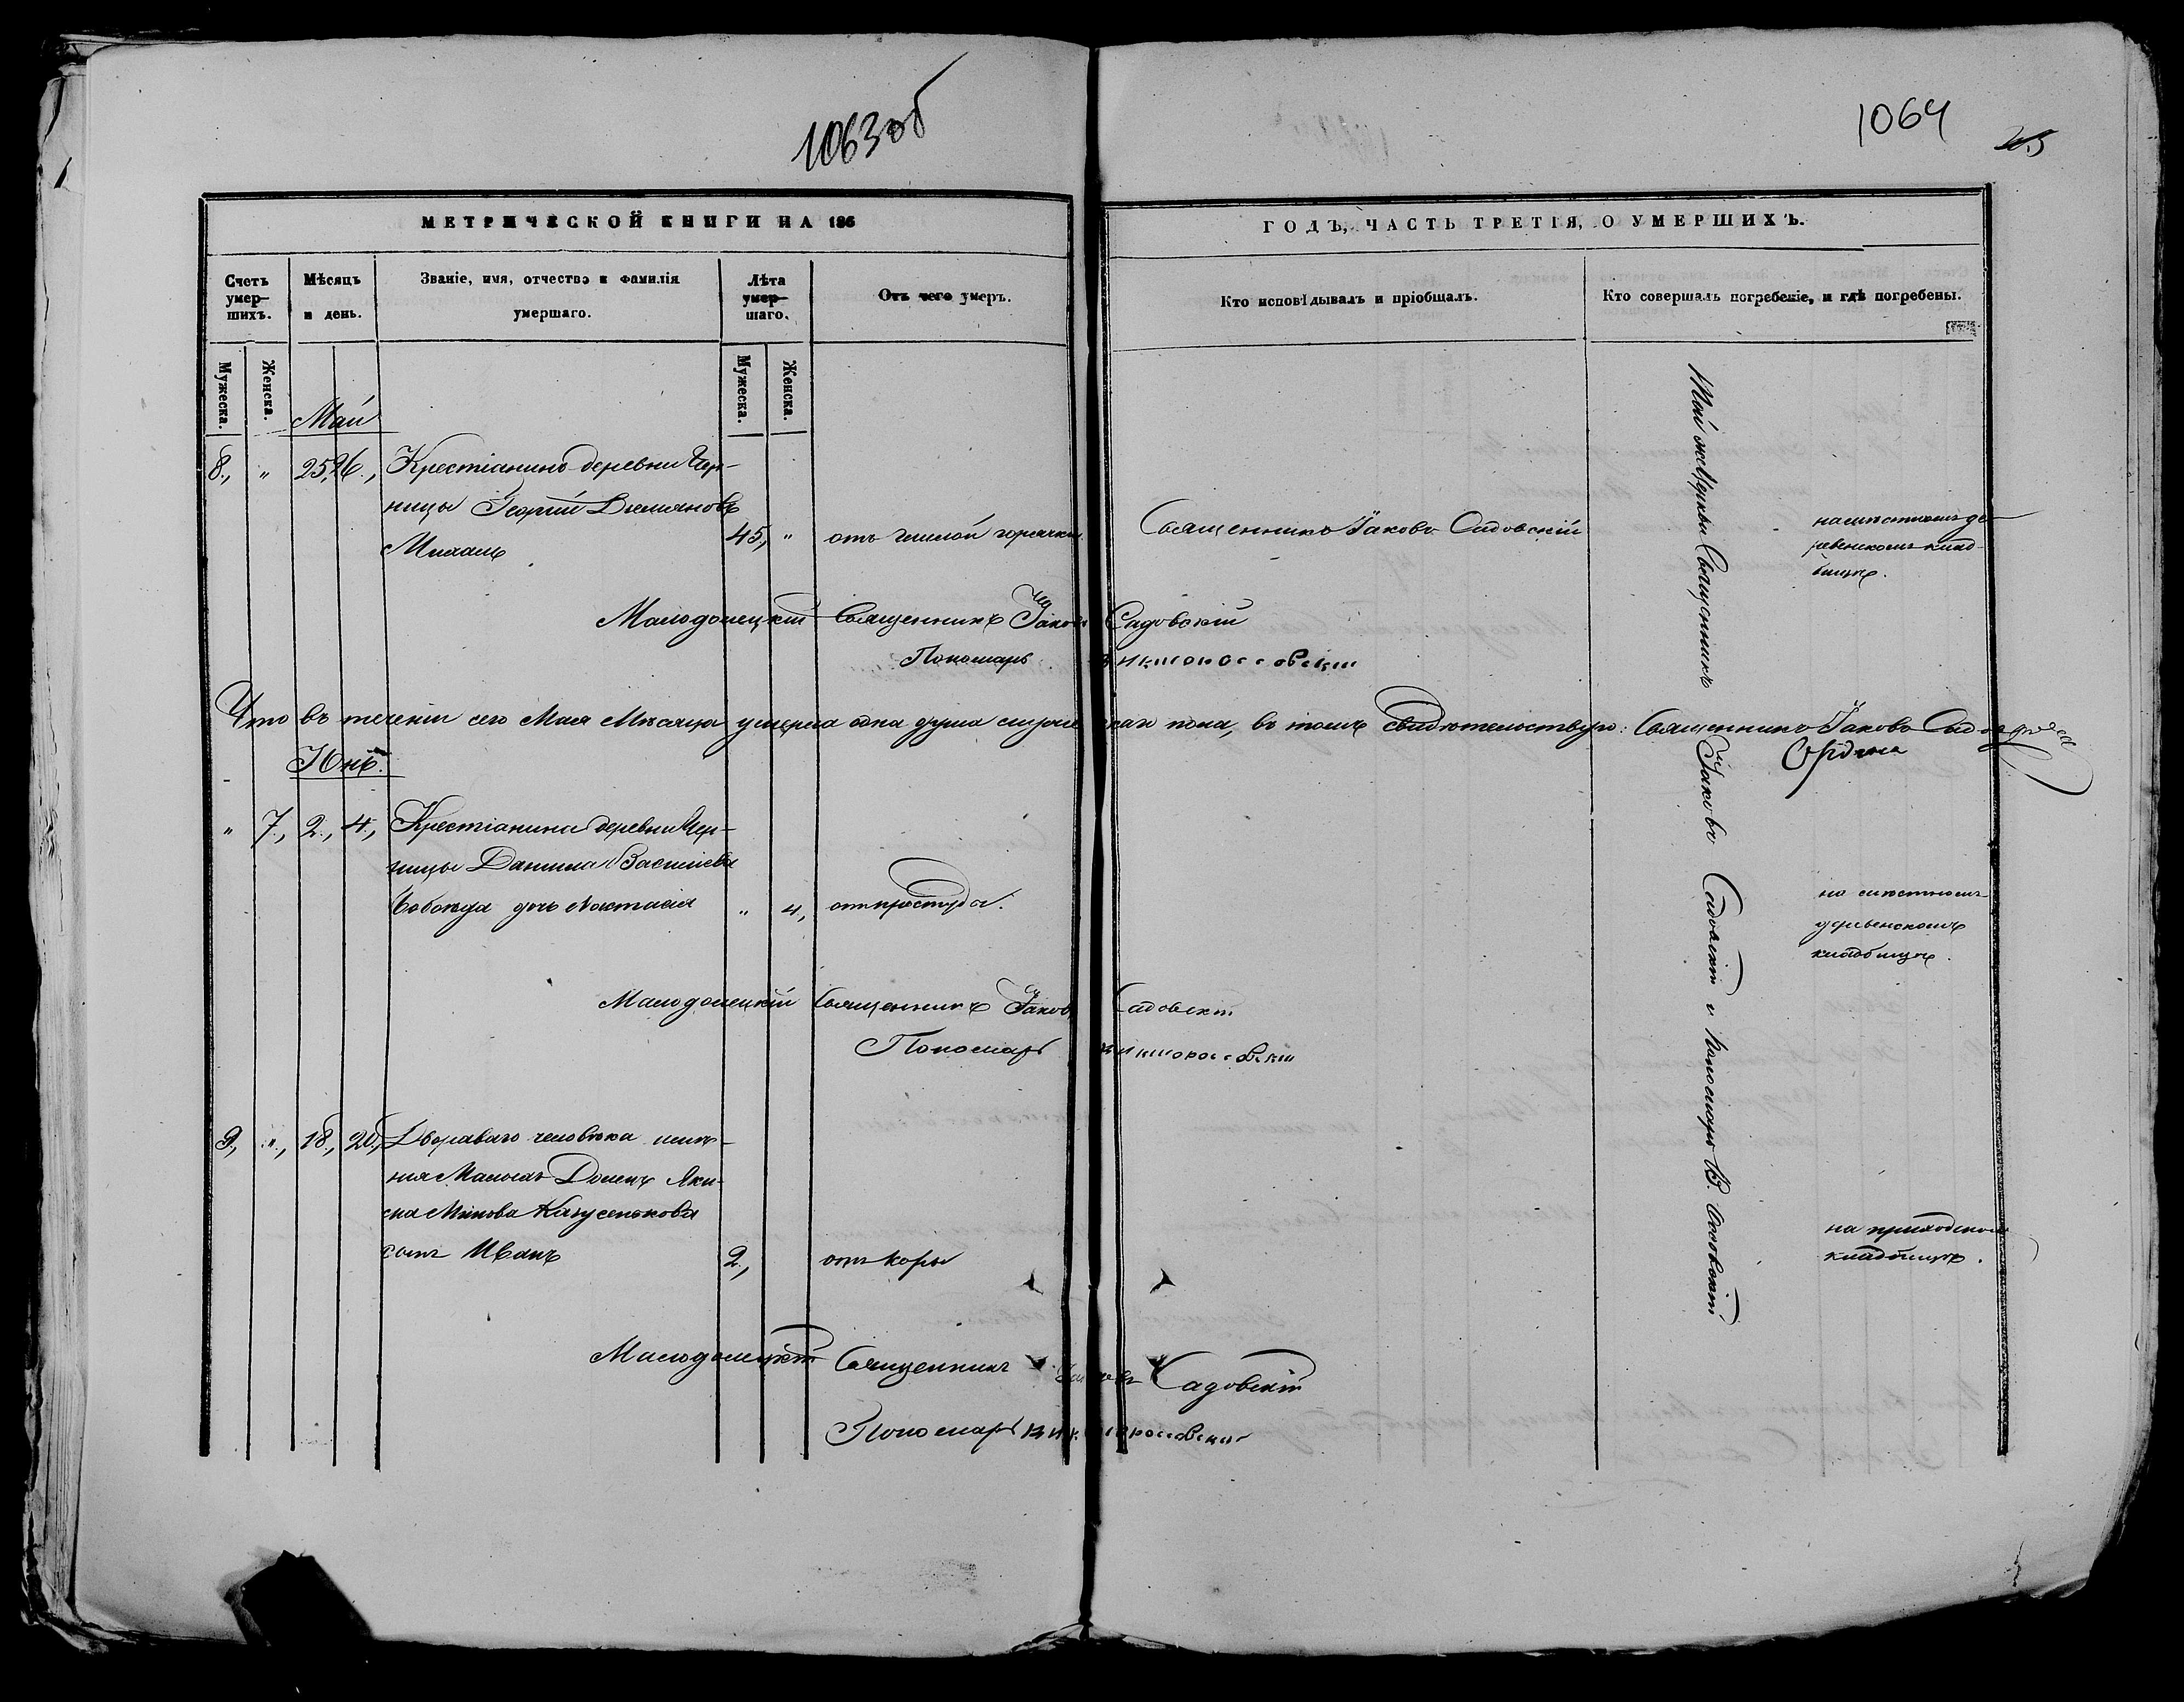 1063об
1064
МЕТРИЧЕСКОЙ КНИГИ НА 186
ГОДЪ, ЧАСТЬ ТРЕТІЯ, О УМЕРШИХЪ.
Счетъ умер-
шихъ.
Мѣсяцъ
и день.
Званіе, имя, отчество и фамилія
умершаго.
Лѣта
умер-
шаго.
Отъ чего умеръ.
Кто исповѣдывалъ и пріобщалъ.
Кто совершалъ погребеніе, и гдѣ погребены.
Мужеска.
Женска.
Мужеска.
Женска.
Май
8., " 25, 26., Крестіанинъ деревни Чер-
ницы Георгій Демяновъ
45, " отъ гнилой горячки Священникъ Іаковъ Садовскій
на мѣстномъ де-
ревенскомъ клад-
бищѣ.
Малодолецкій Священникъ Іаковъ Садовскій
Пономарь
Что въ теченіи сего Мая Мѣсяца умерла одна душа мужескаго пола, въ томъ свидѣтельствую: Священникъ Іаковъ
Юнь.
" 7., 2., 4., Крестіанина деревни Чер-
ницы Данила Василіева
дочь Настасія " 4, отъ простуды.
на мѣстномъ
деревенскомъ
кладбищѣ.
Малодолецкій Священникъ Іаковъ Садовскій
Пономарь
9, ", 18, 20, Двороваго человѣка имѣ-
нія Малыхъ Долецъ Яки-
ма
сынъ Иванъ 2, отъ коры
на приходскомъ
кладбищѣ.
Малодолецкій Священникъ Іаковъ Садовскій
Пономарь
Той же Церкви Священникъ Іаковъ Садовскій и Пономарь В.